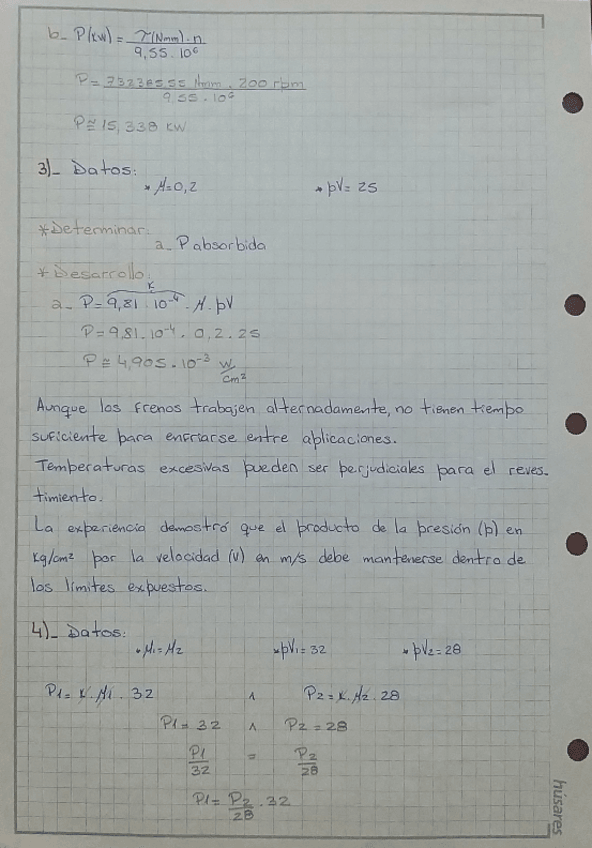 b_ P(kW) = τ(Nmm) . n / 9,55 . 10⁶
P = 7323855,5 Nmm . 200 rpm / 9,55 . 10⁶
P ≅ 15,338 kW
3)_ Datos:
* μ=0,2 * pV= 25
*Determinar:
a_ Pabsorbida
* Desarrollo:
K
a_ P= 9,81 . 10⁻⁴ . μ . pV
P= 9,81 . 10⁻⁴ . 0,2 . 25
P ≅ 4,905 . 10⁻³ W/cm²
Aunque los frenos trabajen alternadamente, no tienen tiempo
suficiente para enfriarse entre aplicaciones.
Temperaturas excesivas pueden ser perjudiciales para el reves-
timiento.
La experiencia demostró que el producto de la presión (p) en
kg/cm² por la velocidad (v) en m/s debe mantenerse dentro de
los límites expuestos.
4)_ Datos:
* μ1= μ2 * pV1= 32 * pV2= 28
P1= K . μ1 . 32 ∧ P2= K . μ2 . 28
P1= 32 ∧ P2= 28
P1/32 = P2/28
P1= P2/28 . 32
húsares